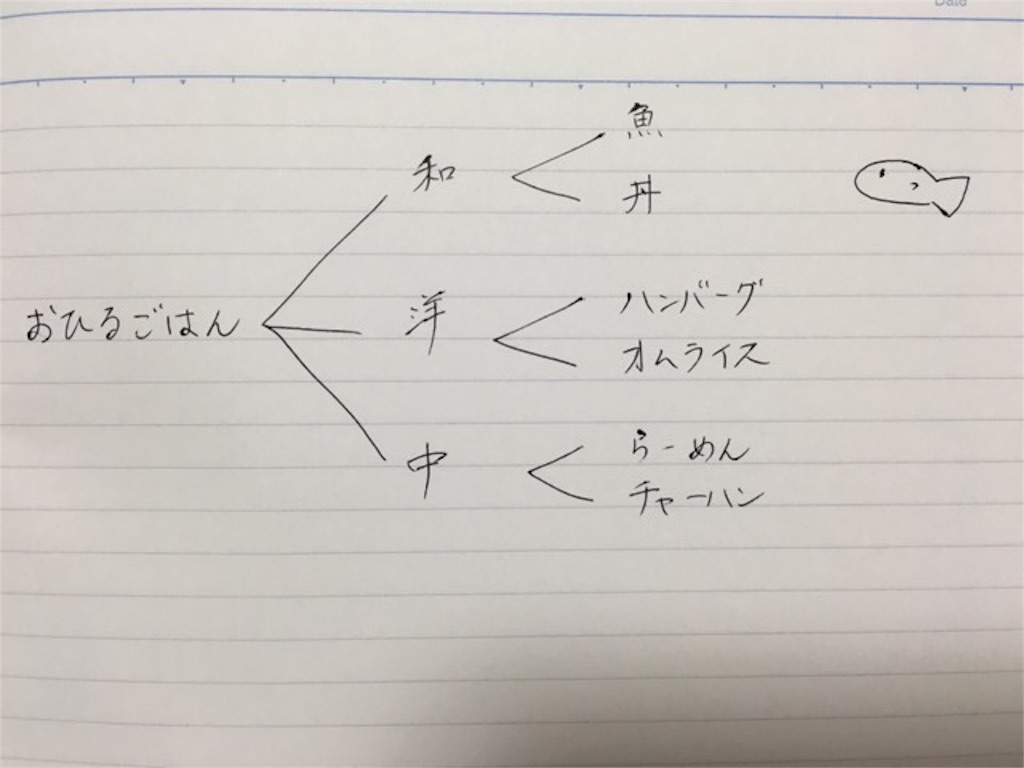 Date
魚
和
丼
ハンバーグ
洋
おひるごはん
オムライス
らーめん
中
チャーハン